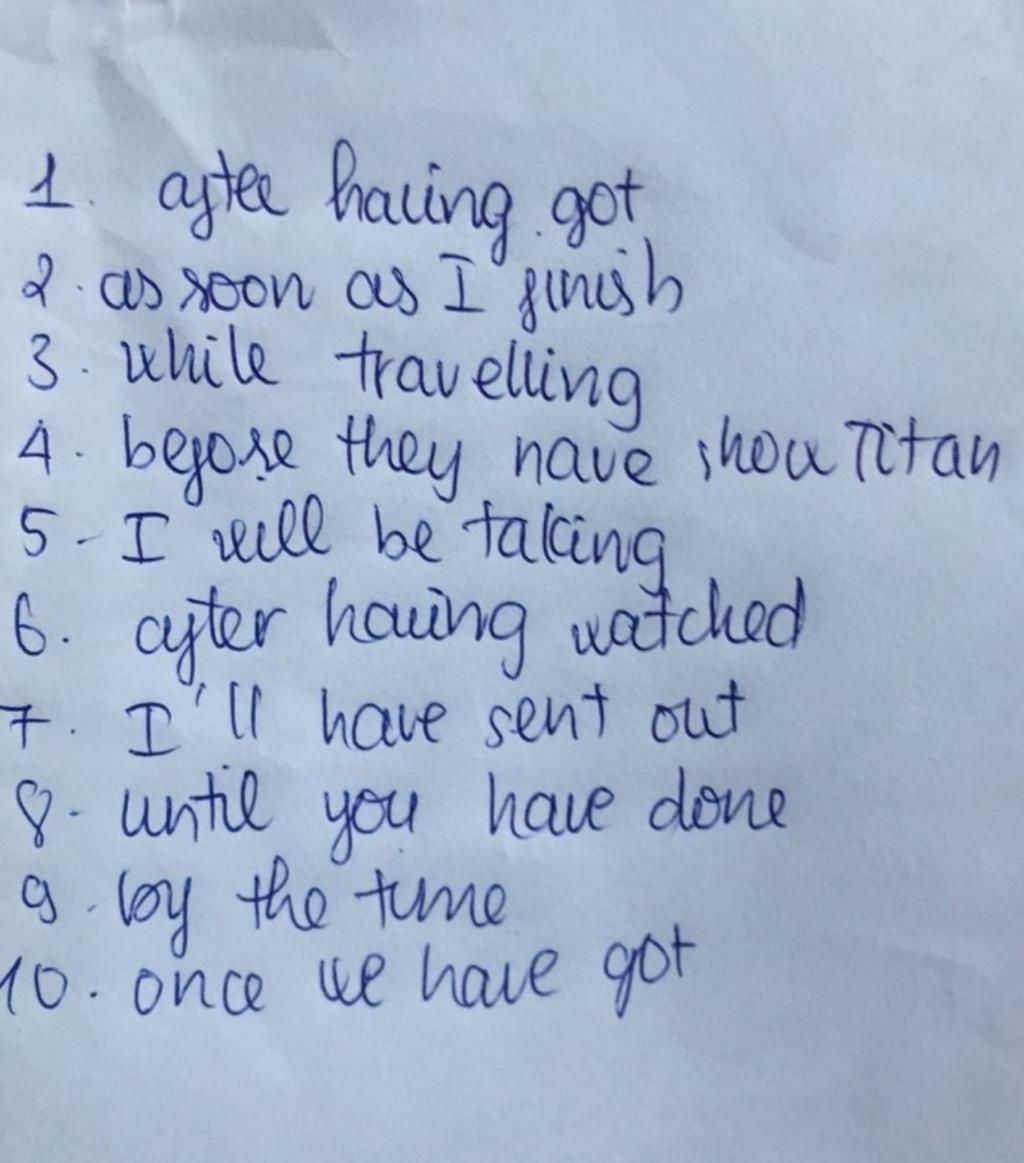 1. after having got
2. as soon as I finish
3. while travelling
4. before they have show Titan
5 - I will be taking
6. after having watched
7. I'll have sent out
8 - until you have done
9. by the time
10. once we have got